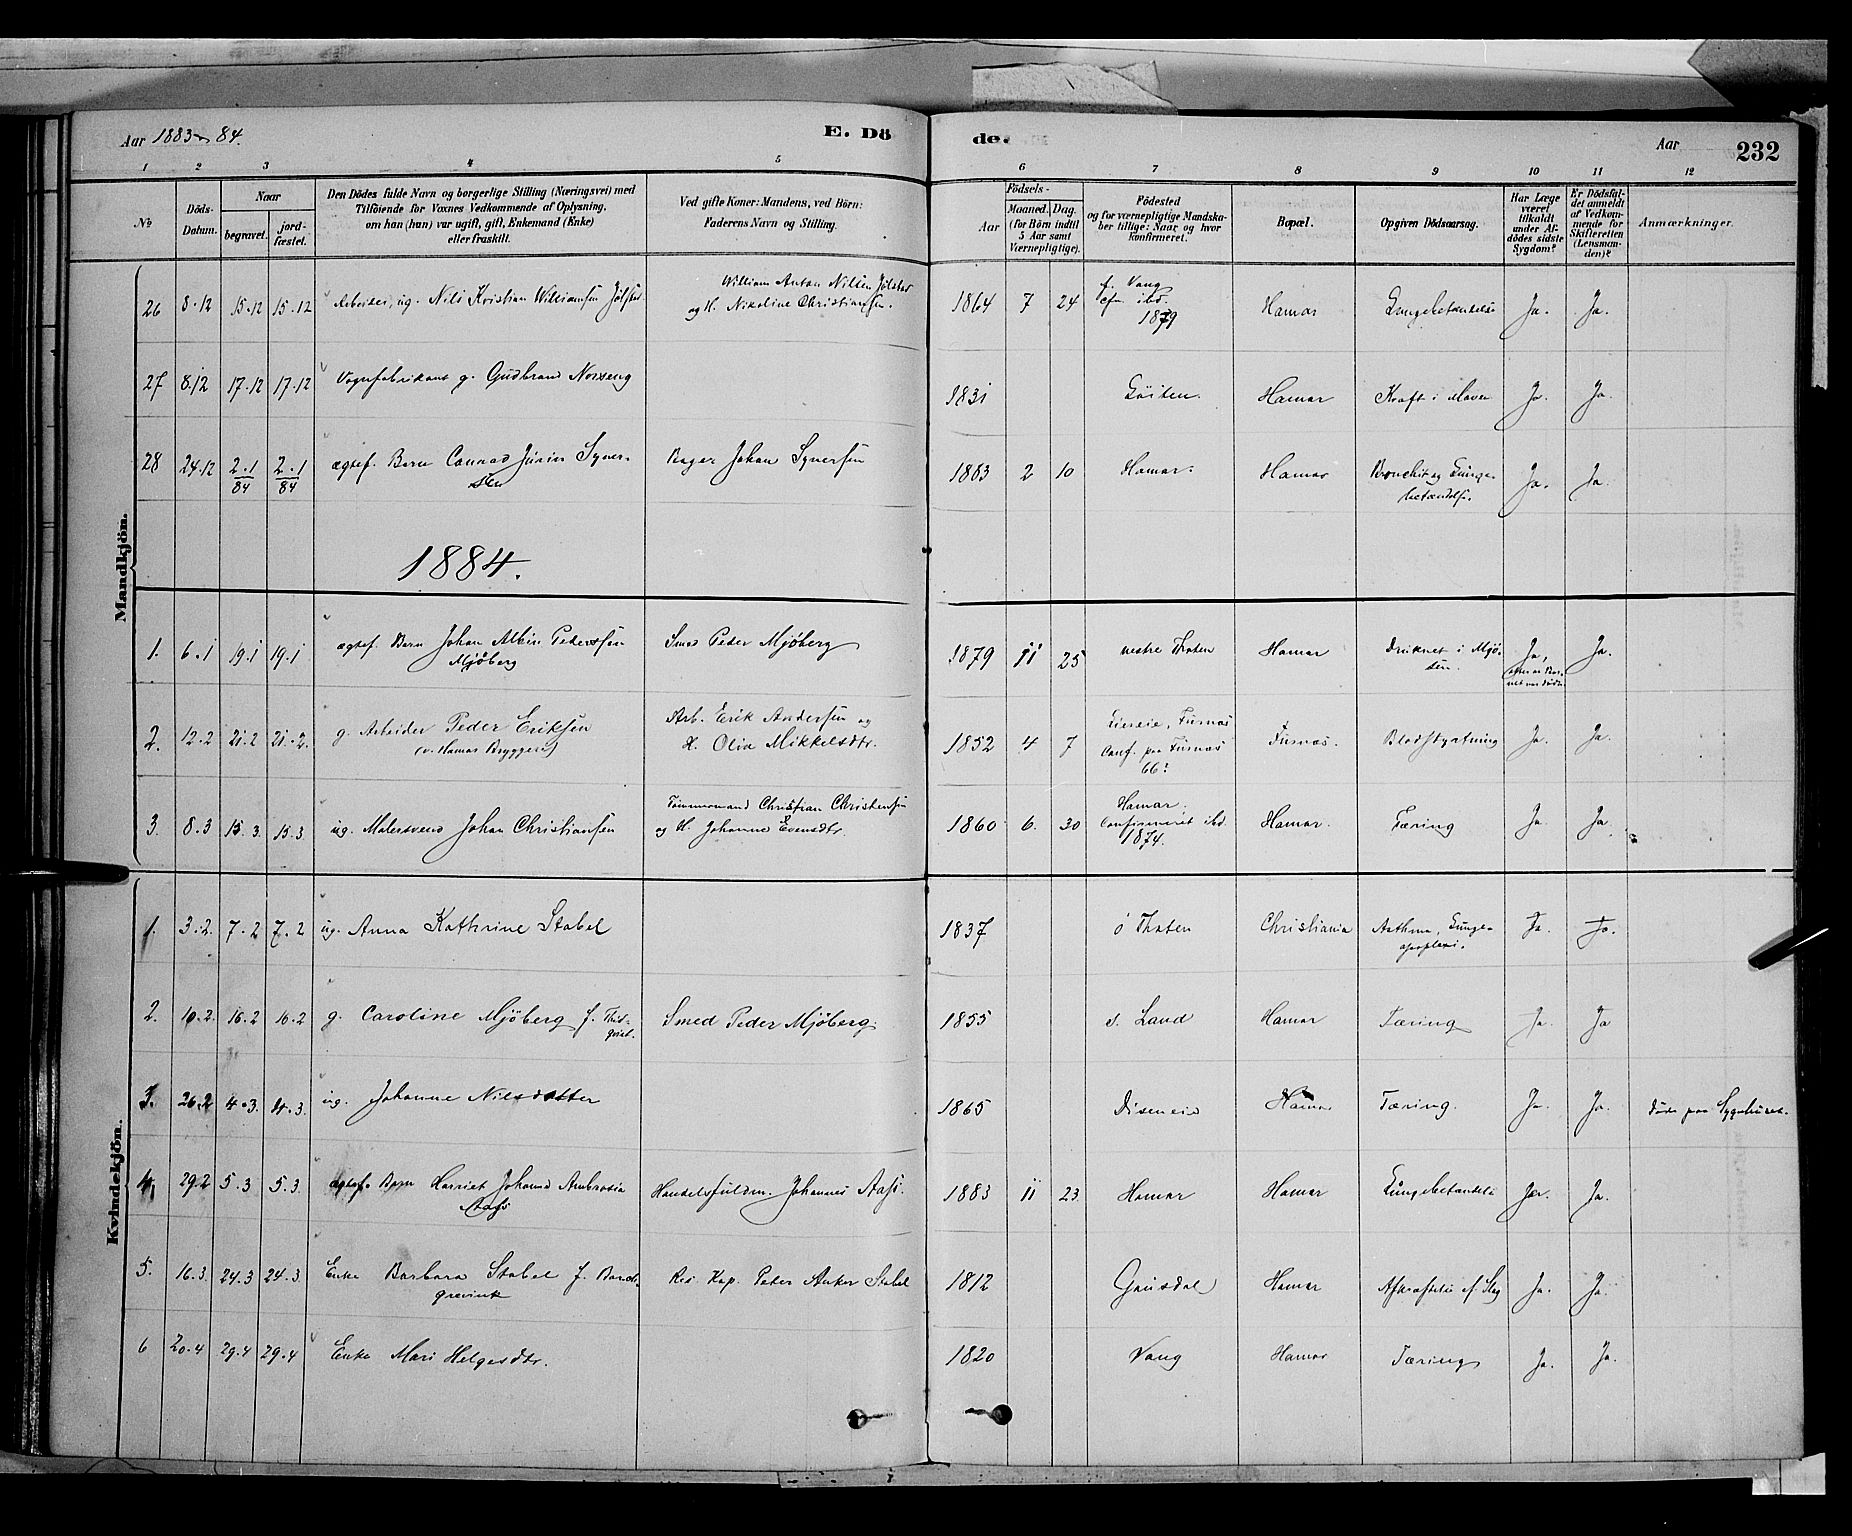 Aar 1883-84.
E. Dö
de.
Aar
232
1 2 3 4 5 6 7 8 9 10 11 12
No
Döds-
Datum.
Naar
begravet.
jord-
fæstet.
Den Dödes fulde Navn og borgerlige Stilling (Næringsvei) med
Tilföiende for Voxnes Vedkommende af Oplysning,
om han (hun) var ugift, gift, Enkemand (Enke)
eller fraskilt.
Ved gifte Koner: Mandens, ved Börn:
Faderens Navn og Stilling.
Födsels-
Aar
Maaned. Dag.
(for Börn indtil
5 Aar samt
Værnepligtige).
Födested
og for værnepligtige Mandska-
ber tillige: Naar og hvor
konfirmeret.
Bopæl.
Opgiven Dödsaarsag.
Har Læge
været
tilkaldt
under Af-
dödes sidste
Sygdom?
Er Dödsfal-
det anmeldt
af Vedkom-
mende for
Skifteretten
(Lensman-
den)?
Anmærkninger.
Mandkjön.
26 8.12 15.12 15.12 Arbeider, ug. Nils Kristian Williamsen Jølstad
William Anton Nilsen Jølstad
og H. Nikoline Christiansen.
1864 7 24
f. Vang
cfm. ibd.
1879
Hamar Lungebetændelse Ja. Ja.
27 8.12 17.12 17.12 Vognfabrikant g. Gudbrand Norseng
1831 Löiten. Hamar Kræft i Maven Ja. Ja.
28 24.12 2.1/84 2.1/84 ægtef. Barn Conrad Juvin Syver-
sen
Bager Johan Syversen
1883 2 10 Hamar. Hamar Bronchit og Lunge-
betændelse. Ja. Ja.
1884.
1. 6.1 19.1 19.1 ægtef. Barn Johan Albin Pedersen
Mjöberg
Smed Peder Mjöberg
1879 11 25 vestre Thoten Hamar Druknet i Mjö-
sen. Ja, Ja.
2. 12.2 21.2 21.2. g. Arbeider Peder Eriksen
(v. Hamar Bryggeri)
Arb. Erik Andersen og
H. Olia Mikkelsdtr.
1852 4 7 Furnæs
Conf. paa Furnæs
66?
Furnæs. Blodstyrtning Ja. Ja.
3. 8.3 15.3. 15.3. ug. Malersvend Johan Christiansen
Tömmermand Christian Christensen
og H. Johanne Evensdtr.
1860 6. 30
Hamar.
Confirmeret ibd.
1874.
Hamar. Tæring Ja. Ja
Kvindekjön.
1. 3.2. 7.2 7.2 ug. Anna Kathrine Stabel
1837 ö Thoten Christiania Asthma, Lunge-
apoplexi. Ja. Ja.
2. 10.2. 16.2 16.2 g. Caroline Mjöberg f.
Smed Peder Mjöberg.
1855 s. Land Hamar Tæring Ja. Ja
3. 26.2 4.3. 4.3. ug. Johanne Nilsdatter
1865 Diseneie Hamar Tæring. Ja. Ja. Døde paa Sygehuset.
4. 29.2 5.3 5.3. ægtef. Barn Harriet Johanne Ambrosia
Aass
Handelsfuldm. Johannes Aass.
1883 11 23. Hamar Hamar Lungebetændelse Ja. Ja.
5. 16.3. 24.3 24.3. Enke Barbara Stabel f.
Res. Kap. Peter Anker Stabel
1812 Gausdal Hamar Afkræftelse ef. Slag Ja. Ja.
6 20.4 29.4 29.4 Enke Mari Helgesdtr.
1820 Vang Hamar Tæring Ja. Ja.